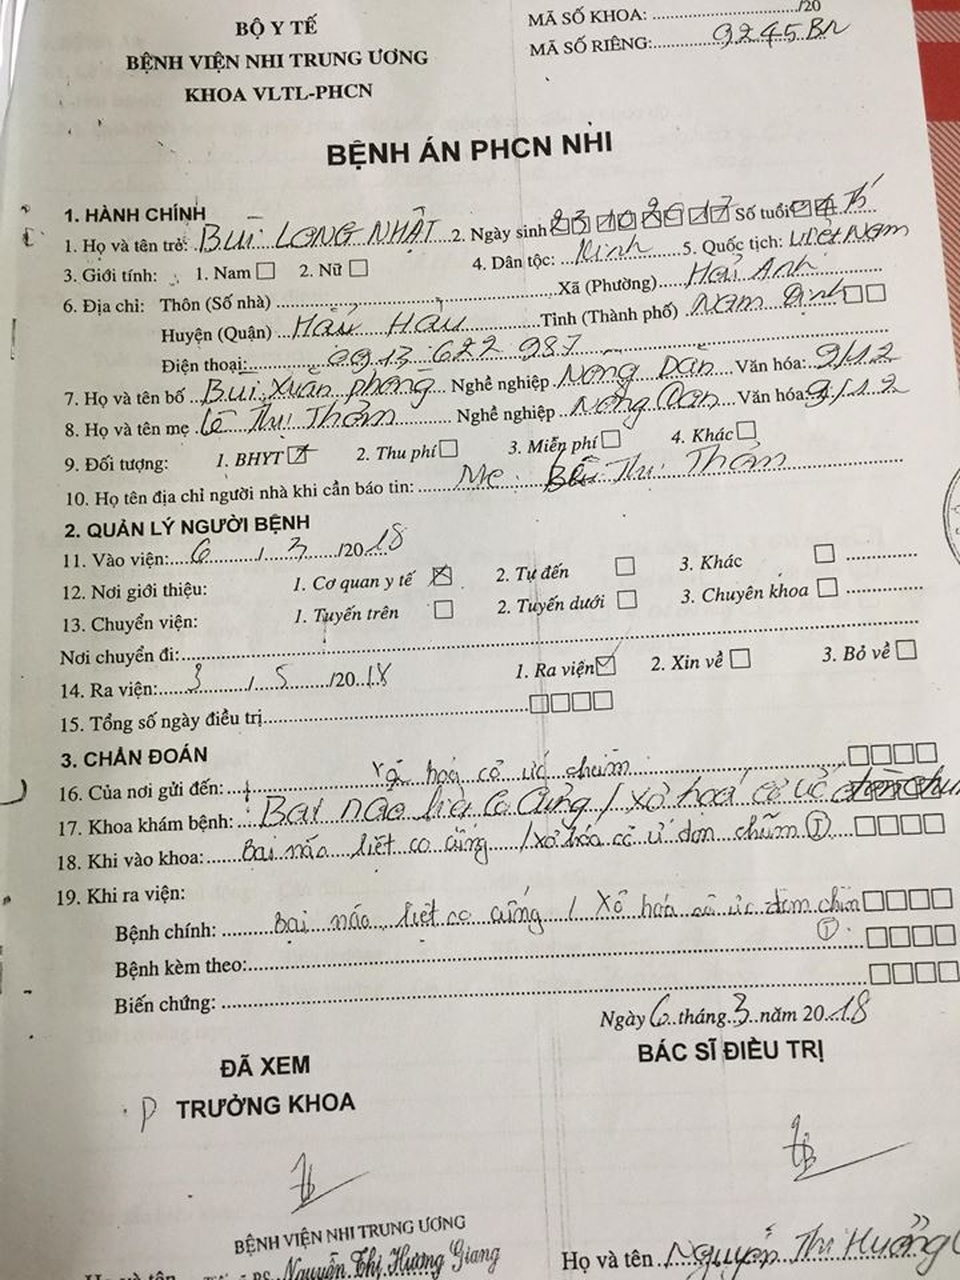 MÃ SỐ KHOA: ..................../20
BỘ Y TẾ
MÃ SỐ RIÊNG: 9245BN
BỆNH VIỆN NHI TRUNG ƯƠNG
KHOA VLTL-PHCN
BỆNH ÁN PHCN NHI
1. HÀNH CHÍNH
1. Họ và tên trẻ: BUI LONG NHẬT 2. Ngày sinh 23 10 2017 Số tuổi
3. Giới tính: 1. Nam 2. Nữ 4. Dân tộc: Kinh 5. Quốc tịch: Việt Nam
6. Địa chỉ: Thôn (Số nhà) Xã (Phường) Hải Anh
Huyện (Quận) Hải Hậu Tỉnh (Thành phố) Nam Định
Điện thoại: 0913 622 987
7. Họ và tên bố Bui Xuân phong Nghề nghiệp Nông Dân Văn hóa: 9/12
8. Họ và tên mẹ Lê Thị Thắm Nghề nghiệp Nông Dân Văn hóa: 9/12
9. Đối tượng: 1. BHYT 2. Thu phí 3. Miễn phí 4. Khác
10. Họ tên địa chỉ người nhà khi cần báo tin: Mẹ: Thị Thắm
2. QUẢN LÝ NGƯỜI BỆNH
11. Vào viện: 6 / 3 /2018
12. Nơi giới thiệu: 1. Cơ quan y tế 2. Tự đến 3. Khác
13. Chuyển viện: 1. Tuyến trên 2. Tuyến dưới 3. Chuyên khoa
Nơi chuyển đi:
14. Ra viện: 3 / 5 /2018 1. Ra viện 2. Xin về 3. Bỏ về
15. Tổng số ngày điều trị
3. CHẨN ĐOÁN
16. Của nơi gửi đến: hoá cơ ức chũm
17. Khoa khám bệnh: Bại não liệt co cứng / xơ hoá cơ ức
18. Khi vào khoa: Bại não liệt co cứng / xơ hóa cơ ức đòn chũm (I)
19. Khi ra viện:
Bệnh chính: Bại não liệt co cứng / xơ hoá cơ ức đòn chũm
Bệnh kèm theo: (I)
Biến chứng:
Ngày 6 tháng 3 năm 2018
ĐÃ XEM
BÁC SĨ ĐIỀU TRỊ
P TRƯỞNG KHOA
BỆNH VIỆN NHI TRUNG ƯƠNG
Nguyễn Thị Hương Giang
Họ và tên Nguyễn Thị Hương